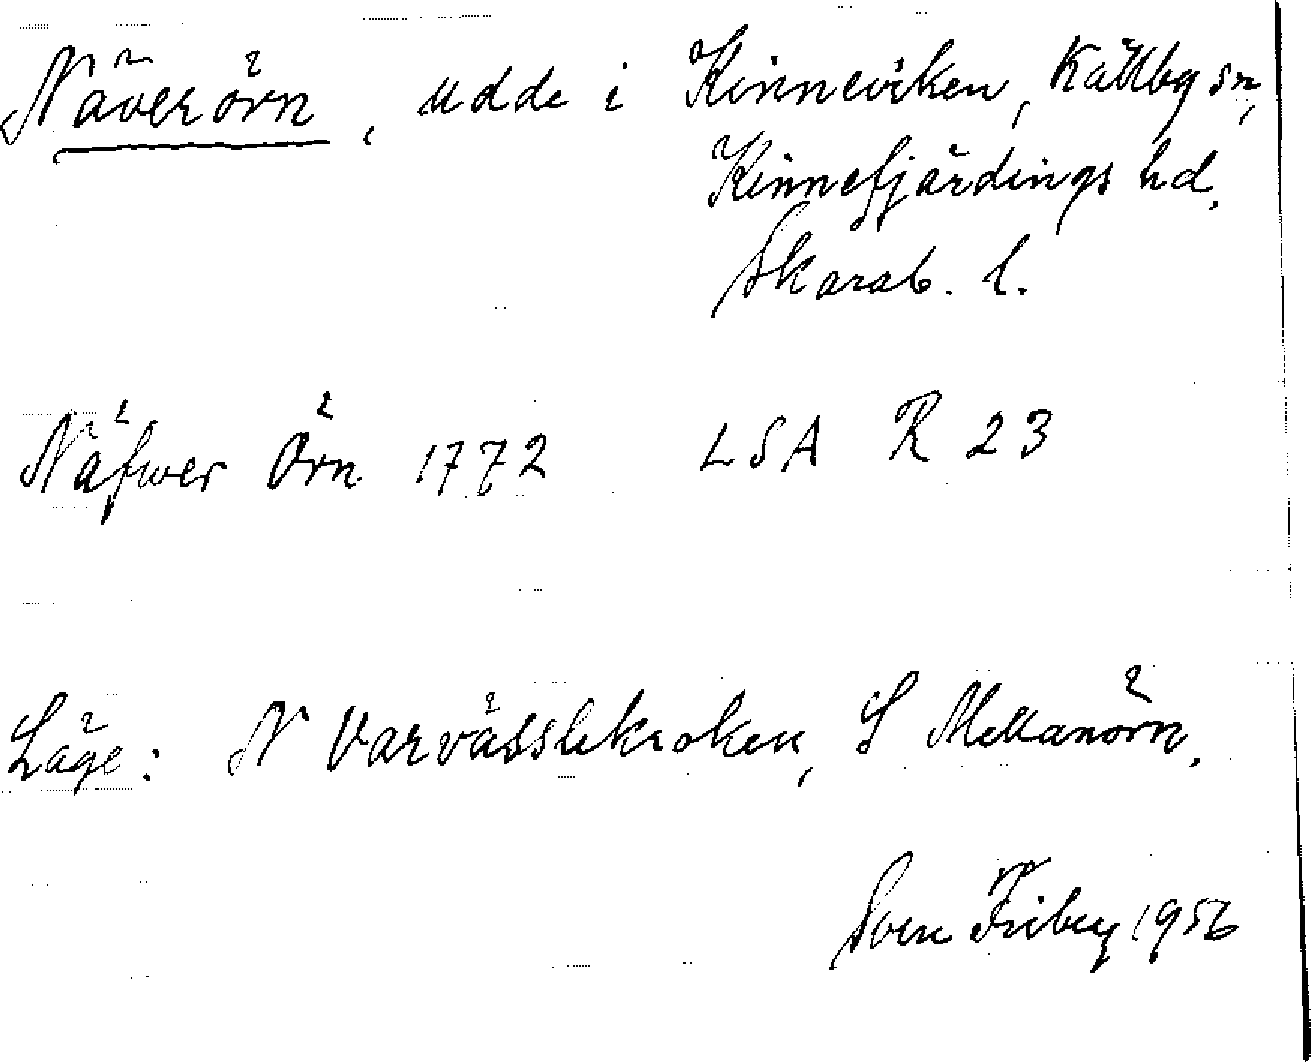 Näverörn, udde i Kinneviken, Källby sn,
Kinnefjärdings hd.
Skarab. l.
Näfwer Örn 1772 LSA R 23
Läge: N Varvässlekroken, S Mellanörn.
Sven Friberg 1956